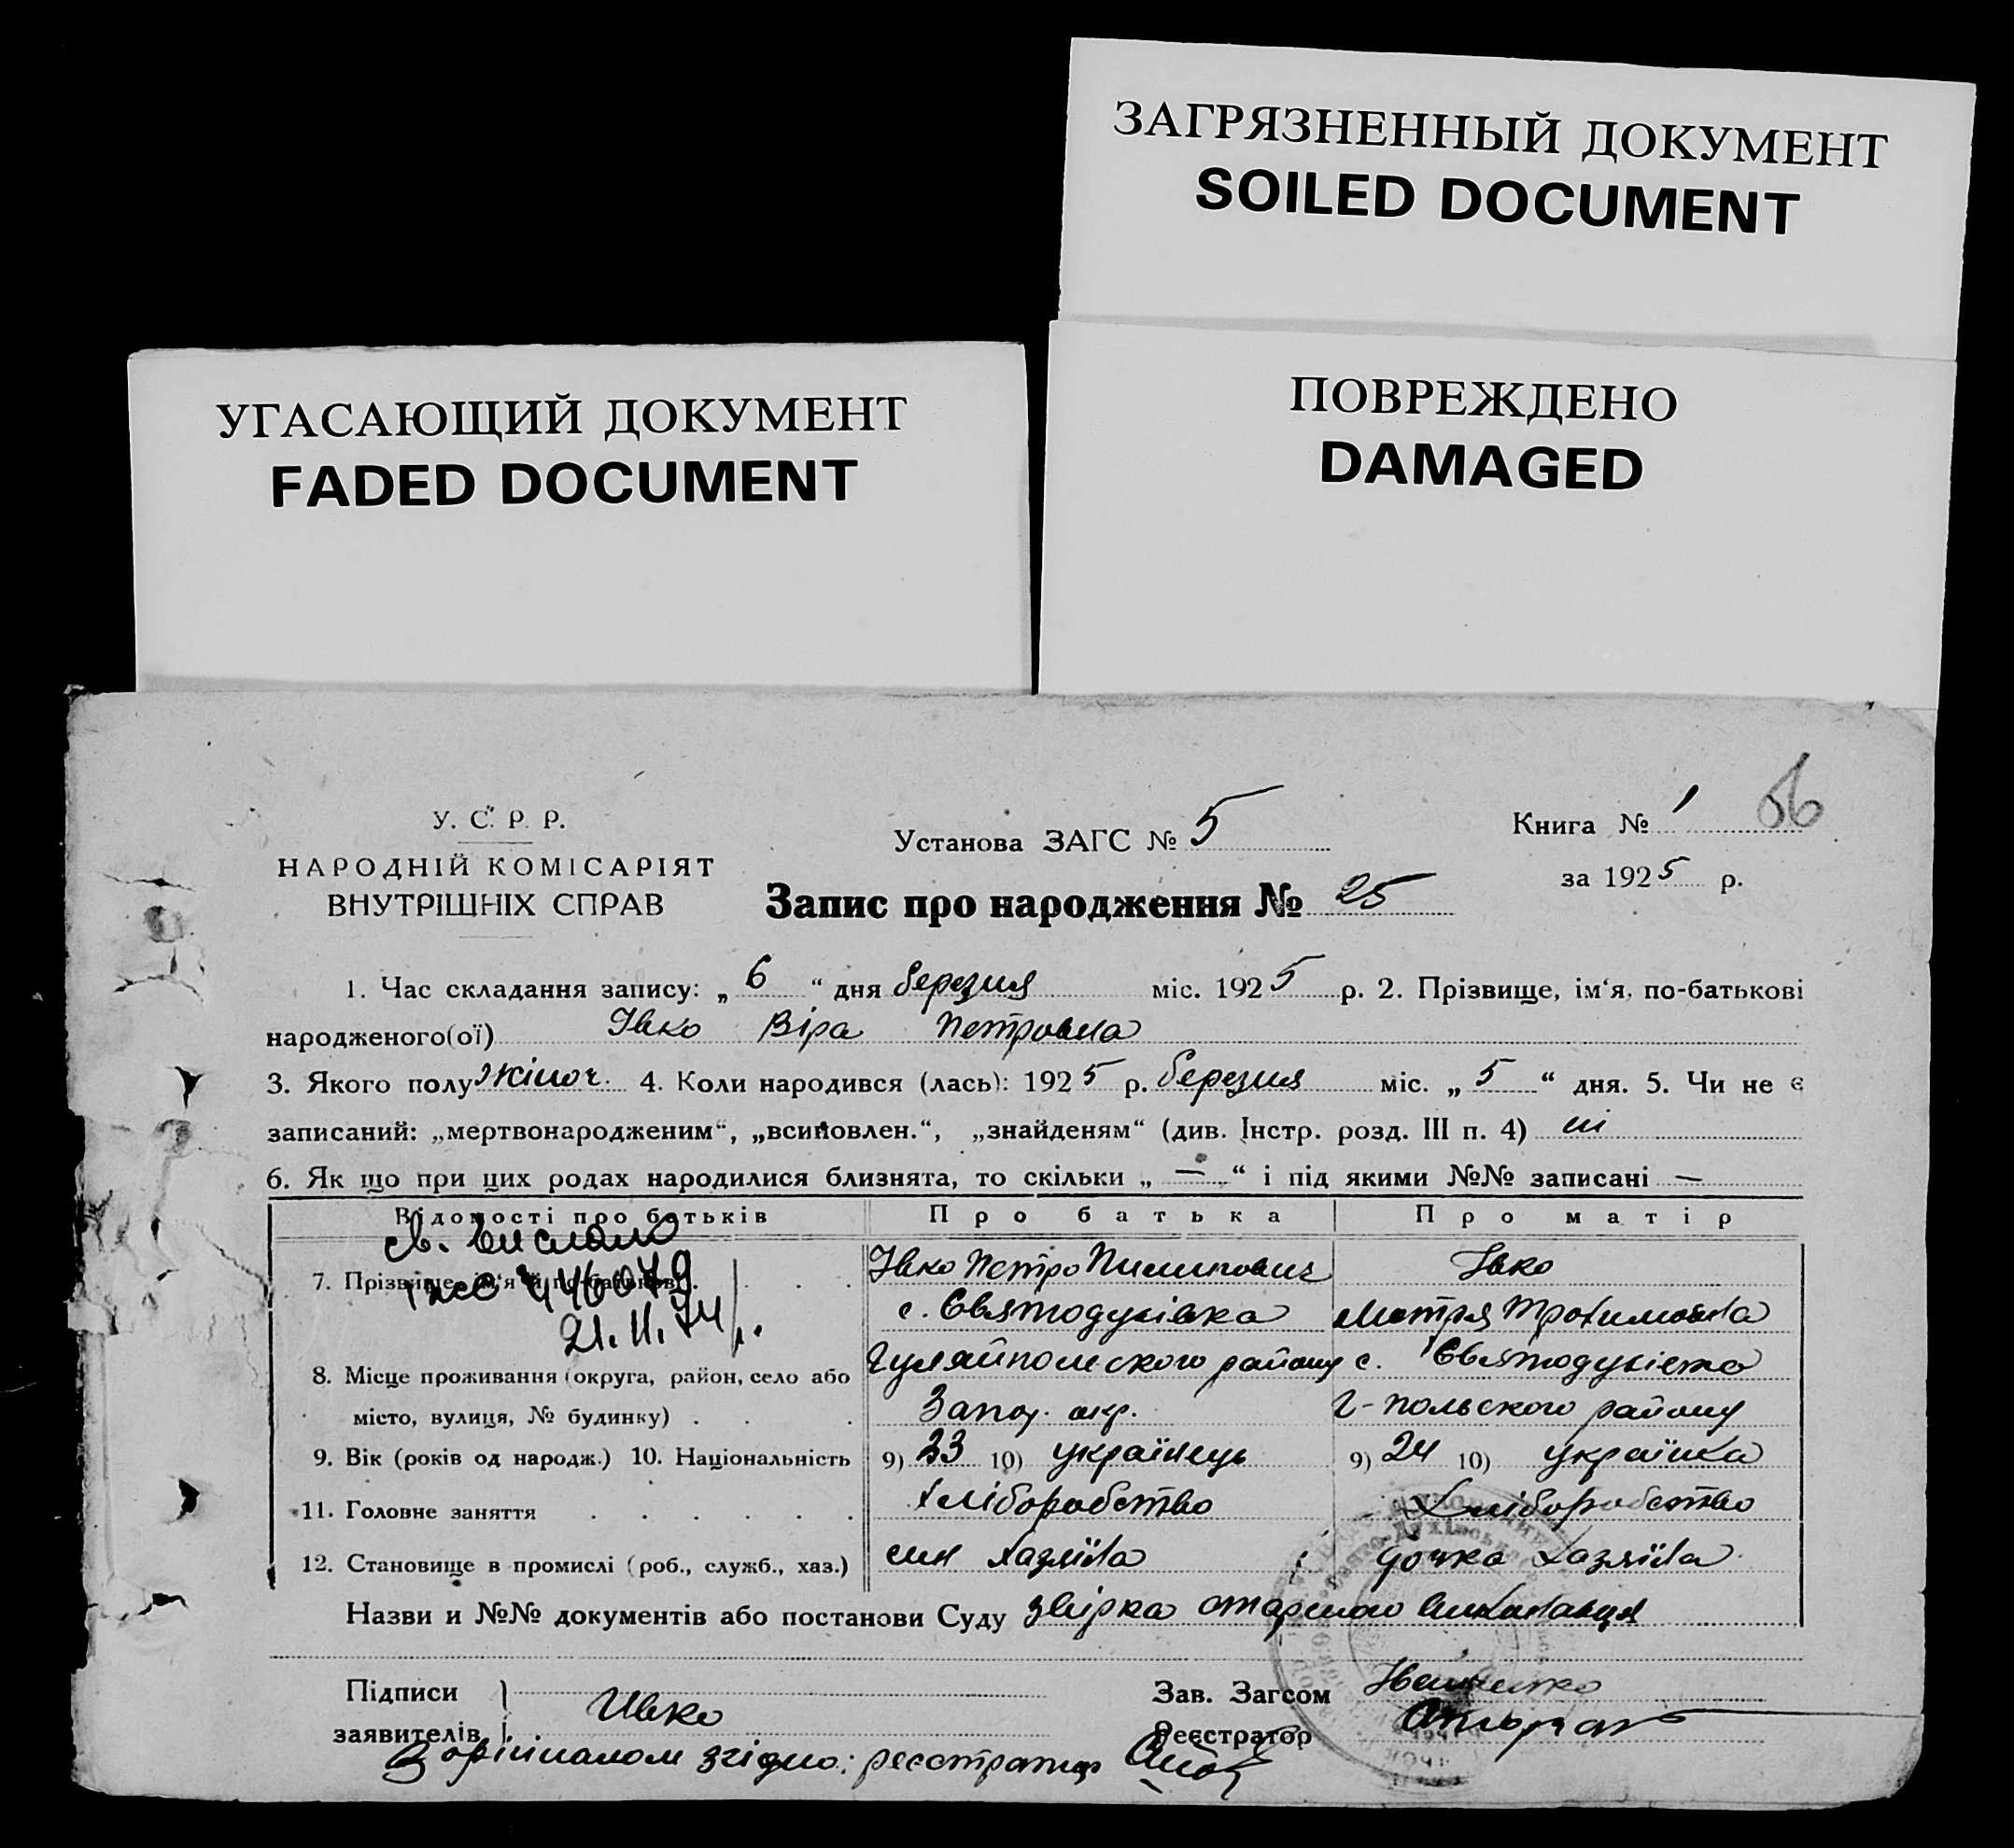 ЗАГРЯЗНЕННЫЙ ДОКУМЕНТ
SOILED DOCUMENT
УГАСАЮЩИЙ ДОКУМЕНТ
FADED DOCUMENT
ПОВРЕЖДЕНО
DAMAGED
У. С. Р. Р.
НАРОДНІЙ КОМІСАРІЯТ
ВНУТРІШНІХ СПРАВ
Установа ЗАГС № 5
Запис про народження № 25
Книга № 1
за 1925 р.
1. Час складання запису: „ 6 “ дня березня міс. 1925 р. 2. Прізвище, ім‘я, по-батькові
народженого(ої) Івко Віра Петровна
3. Якого полу жіноч. 4. Коли народився (лась): 1925 р. березня міс. „ 5 “ дня. 5. Чи не є
записаний: „мертвонародженим“, „всиновлен.“, „знайденям“ (див. Інстр. розд. III п. 4) ні
6. Як що при цих родах народилися близнята, то скільки „ — “ і під якими №№ записані —
Відомості про батьків Про батька Про матір
7. Прізвище, ім‘я й по-батькові Івко Петро Пилипович Івко
21.11.74 р. с. Святодухівка Мотря Трохимовна
Гуляйпольского району с. Святодухівка
8. Місце проживання (округа, район, село або
місто, вулиця, № будинку) Запор. окр. Г-польского району
9. Вік (років од народж.) 10. Національність 9) 23 10) українець 9) 24 10) українка
11. Головне заняття хліборобство Хліборобство
12. Становище в промислі (роб., служб., хаз.) син хазяїна дочка хазяїна
Назви и №№ документів або постанови Суду звірка старшого виконавця
Підписи
заявителів Ивко
Зав. Загсом
Реєстратор
З орігіналом згідно: реєстратор